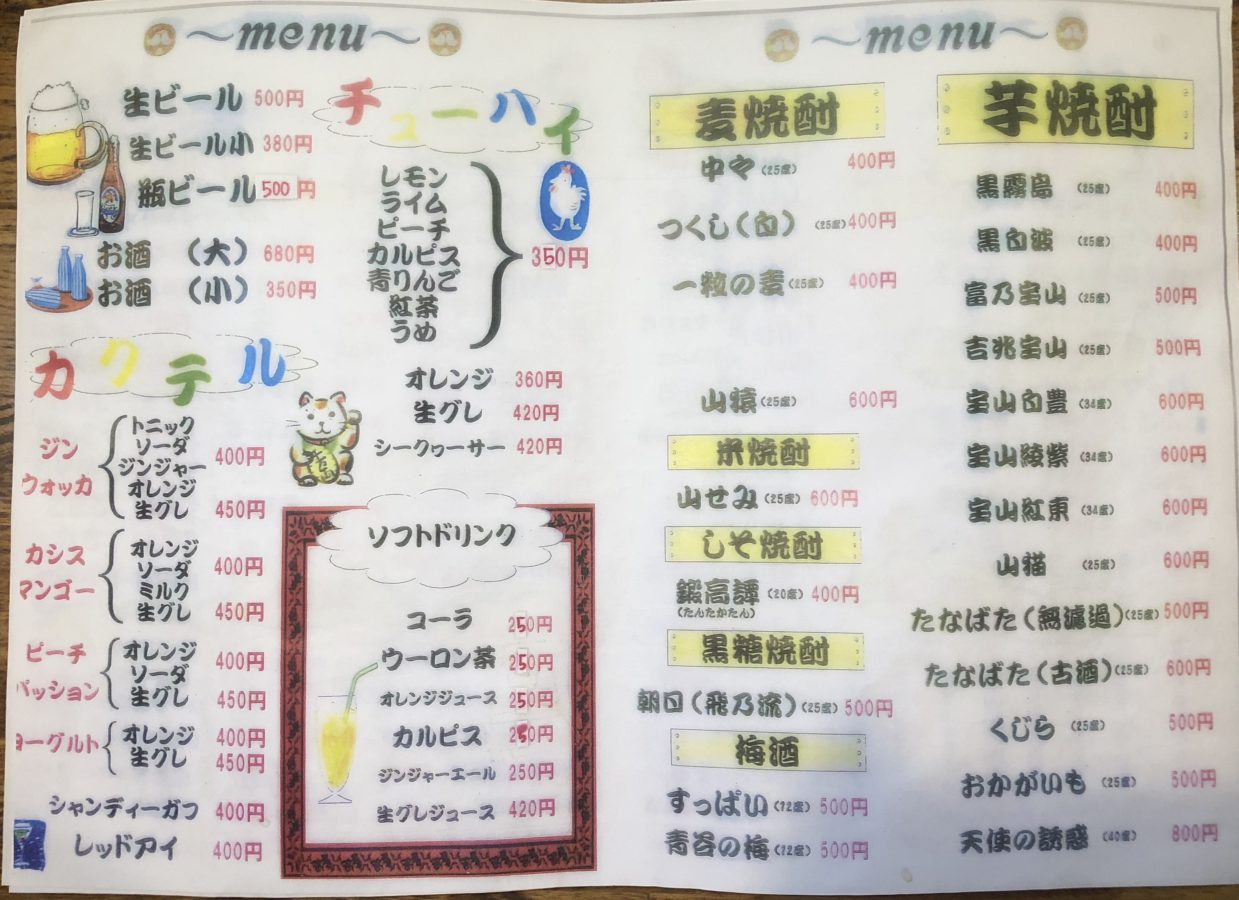 ~menu~
生ビール 500円
生ビール小 380円
瓶ビール 500円
お酒 (大) 680円
お酒 (小) 350円
カクテル
ジン
ウォッカ
トニック
ソーダ
ジンジャー
オレンジ
400円
生グレ 450円
カシス
マンゴー
オレンジ
ソーダ
ミルク
400円
生グレ 450円
ピーチ
パッション
オレンジ
ソーダ
400円
生グレ 450円
ヨーグルト
オレンジ 400円
生グレ 450円
シャンディーガフ 400円
レッドアイ 400円
チューハイ
レモン
ライム
ピーチ
カルピス
青りんご
紅茶
うめ
350円
オレンジ 360円
生グレ 420円
シークヮーサー 420円
ソフトドリンク
コーラ 250円
ウーロン茶 250円
オレンジジュース 250円
カルピス 250円
ジンジャーエール 250円
生グレジュース 420円
~menu~
麦焼酎
中々 (25度) 400円
つくし(白) (25度) 400円
一粒の麦 (25度) 400円
山猿 (25度) 600円
米焼酎
山せみ (25度) 600円
しそ焼酎
鍛高譚 (20度) 400円
(たんたかたん)
黒糖焼酎
朝日(飛乃流) (25度) 500円
梅酒
すっぱい (12度) 500円
青谷の梅 (12度) 500円
芋焼酎
黒霧島 (25度) 400円
黒白波 (25度) 400円
富乃宝山 (25度) 500円
吉兆宝山 (25度) 500円
宝山白豊 (34度) 600円
宝山綾紫 (34度) 600円
宝山紅東 (34度) 600円
山猫 (25度) 600円
たなばた(無濾過) (25度) 500円
たなばた(古酒) (25度) 600円
くじら (25度) 500円
おかがいも (25度) 500円
天使の誘惑 (40度) 800円